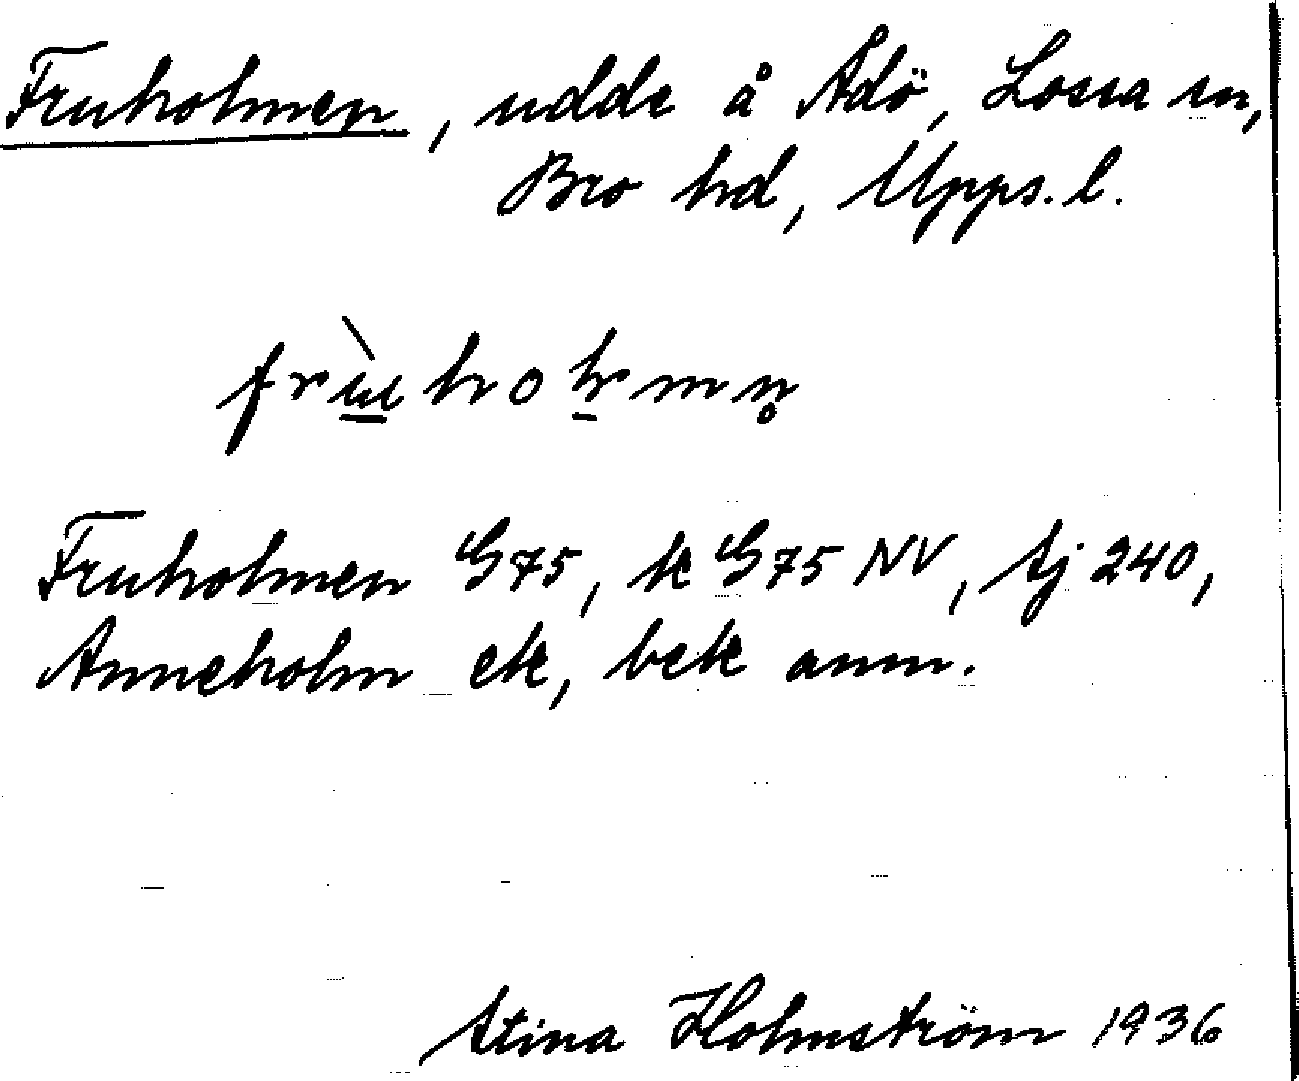 Fruholmen, udde å Ådö, Lossa sn,
Bro hd, Upps. l.
Fruholmen G75, k G75 NV, tj 240,
Anneholm ek, bek anm.
Stina Holmström 1936